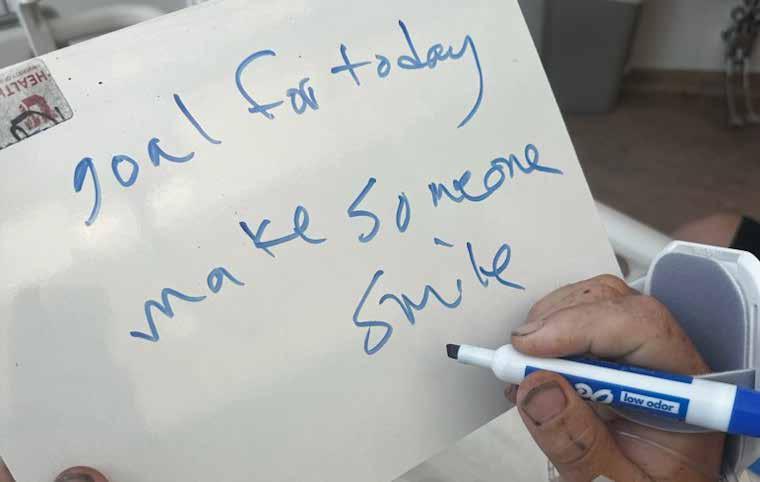 goal for today
make someone
smile
HEALTH
low odor